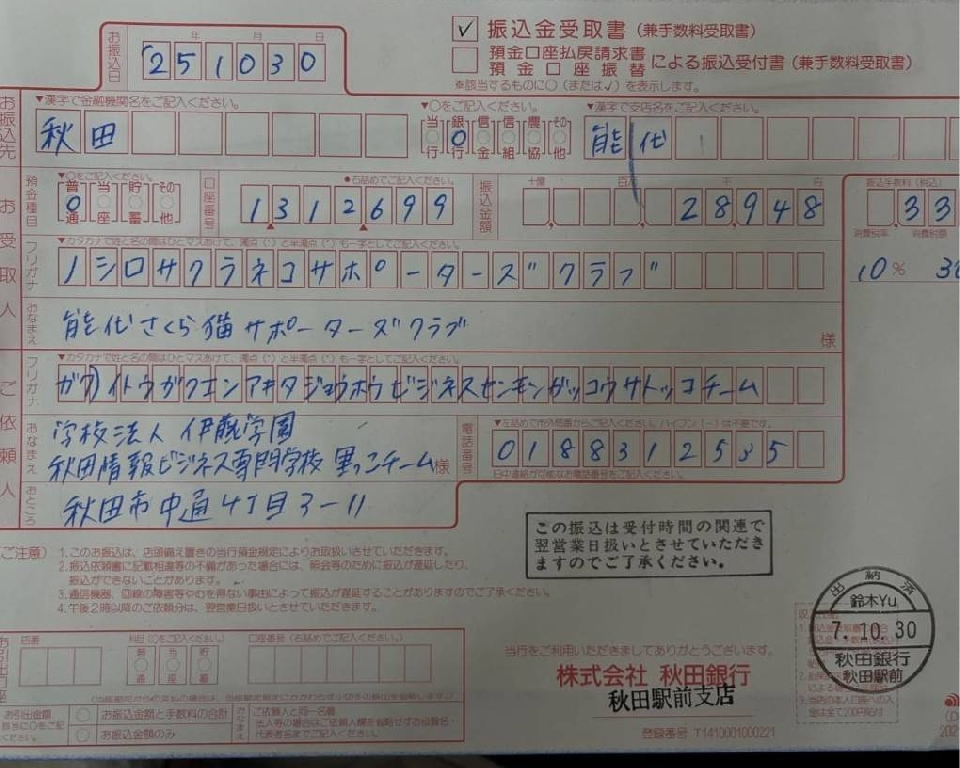 ✓ 振込金受取書(兼手数料受取書)
預金口座払戻請求書
預金口座振替 による振込受付書(兼手数料受取書)
※該当するものに○(または✓)を表示します。
お振込日 年 月 日
251030
お振込先
▼漢字で金融機関名をご記入ください。 ▼○をご記入ください。 ▼漢字で支店名をご記入ください。
秋田 当行 銀行 信金 信組 農協 その他 能代
お受取人
預金種目 ▼○をご記入ください。 普通 当座 貯蓄 その他
口座番号 ●右詰めでご記入ください。 1312699
振込金額 十億 百万 千 円 28948
振込手数料(税込) 33
消費税率 消費税額
10%
フリガナ ▼カタカナで姓と名の間はひとマスあけて、濁点(゛)と半濁点(゜)も一字としてご記入ください。
ノシロサクラネコサポーターズ゛クラブ゛
おなまえ 能代さくら猫サポーターズクラブ 様
ご依頼人
フリガナ ▼カタカナで姓と名の間はひとマスあけて、濁点(゛)と半濁点(゜)も一字としてご記入ください。
ガク)イトウガクエンアキタジョウホウビジネスセンモンガッコウサトッコチーム
おなまえ 学校法人 伊藤学園
秋田情報ビジネス専門学校 里っこチーム 様
電話番号 ▼左詰めで市外局番からご記入ください。ハイフン(-)は不要です。
0188312535
日中連絡が可能なお電話番号をご記入ください。
おところ 秋田市中通4丁目3-11
この振込は受付時間の関連で
翌営業日扱いとさせていただき
ますのでご了承ください。
(ご注意) 1.このお振込は、店頭備え置きの当行振込規定によりお取扱いさせていただきます。
2.振込依頼書に記載相違等の不備があった場合には、照会等のために振込が遅延したり、
振込ができないことがあります。
3.通信機器、回線の障害等やむを得ない事由によって振込が遅延することがありますのでご了承ください。
4.午後2時以降のご依頼分は、翌営業日扱いとさせていただきます。
出納済
鈴木Yu
7.10.30
秋田銀行
秋田駅前
店番 科目(○をご記入ください。) 口座番号(右詰めでご記入ください。)
普通 当座 貯蓄
当行をご利用いただきましてありがとうございます。
株式会社 秋田銀行
秋田駅前支店
お引出金額 お振込金額と手数料の合計
お振込金額のみ
おなまえ ご依頼人と同一名義
登録番号 T1410001000221